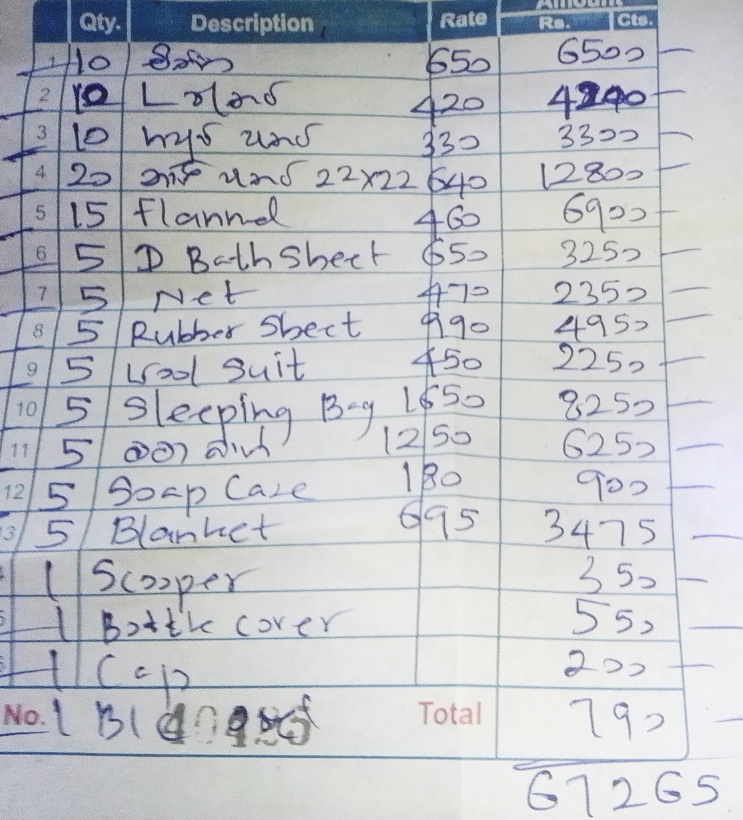 Qty. Description Rate Amount Rs. Cts.
1 10 650 6500 —
2 10 L 420 4200 —
3 10 330 3300 —
4 20 22x22 640 12800 —
5 15 Flannel 460 6900 —
6 5 D Bath Sheet 650 3250 —
7 5 Net 470 2350 —
8 5 Rubber Sheet 990 4950 —
9 5 Wool Suit 450 2250 —
10 5 Sleeping Bag 1650 8250 —
11 5 1250 6250 —
12 5 Soap Case 180 900 —
13 5 Blanket 695 3475 —
1 Scooper 350 —
1 Bottle cover 550 —
1 Cap 200 —
No. 1 Total 790 —
67265